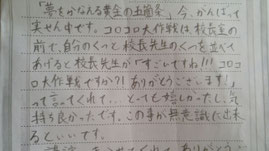 「夢をかなえる黄金の五箇条」今、がんばって
実せん中です。コロコロ大作戦は校長室の
前で、自分のくつと校長先生のくつを並べて
あげると校長先生が「すごしですね!!! コロコ
ロ大作戦ですか?! ありがとうございます!」
って言ってくれて…とっても嬉しかったし、気
持ち良かったです。この事が無意識に出来
るといいです。